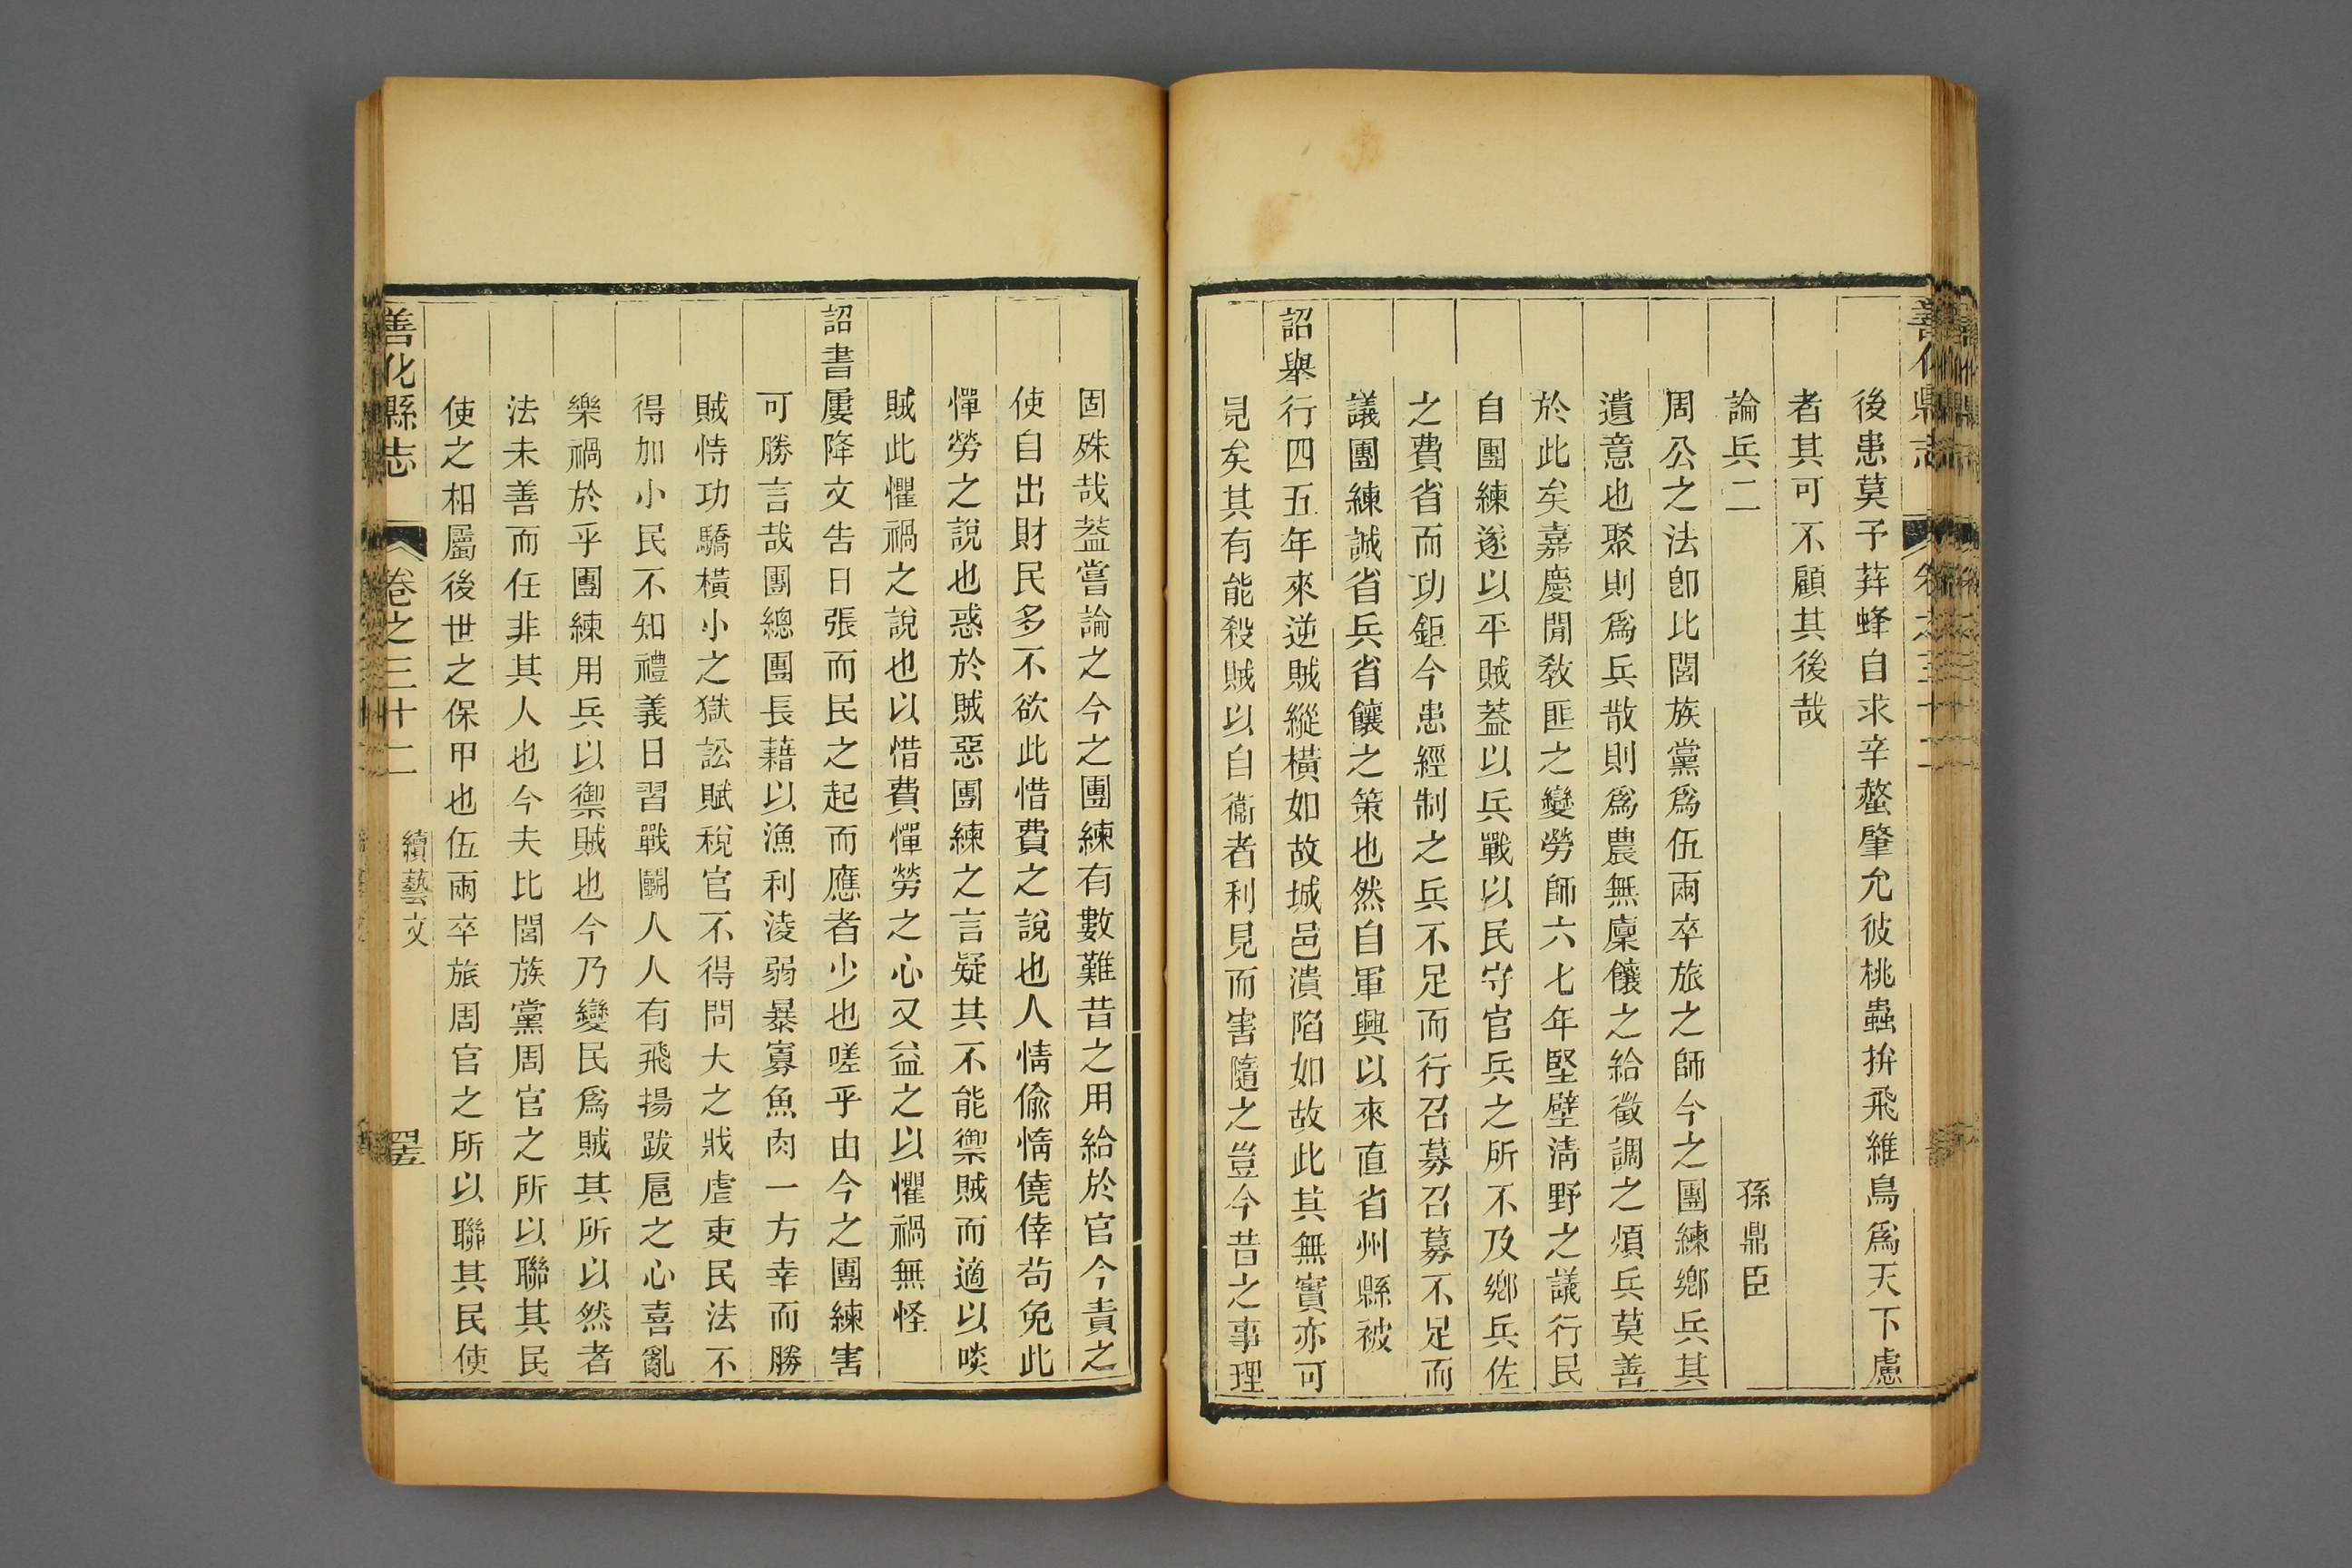 善化縣志
卷之三十二
後患莫予荓蜂自求辛螫肇允彼桃蟲拚飛維鳥爲天下慮
者其可不顧其後哉
論兵二
孫鼎臣
周公之法卽比閭族黨爲伍兩卒旅之師今之團練鄉兵其
遺意也聚則爲兵散則爲農無廩饟之給徵調之煩兵莫善
於此矣嘉慶閒敎匪之變勞師六七年堅壁淸野之議行民
自團練遂以平賊葢以兵戰以民守官兵之所不及鄉兵佐
之費省而功鉅今患經制之兵不足而行召募召募不足而
議團練誠省兵省饟之策也然自軍興以來直省州縣被
詔舉行四五年來逆賊縱橫如故城邑潰陷如故此其無實亦可
見矣其有能殺賊以自衞者利見而害隨之豈今昔之事理
固殊哉葢嘗論之今之團練有數難昔之用給於官今責之
使自出財民多不欲此惜費之說也人情偸惰僥倖茍免此
憚勞之說也惑於賊惡團練之言疑其不能禦賊而適以啖
賊此懼禍之說也以惜費憚勞之心又益之以懼禍無怪
詔書屢降文告日張而民之起而應者少也嗟乎由今之團練害
可勝言哉團總團長藉以漁利淩弱暴寡魚肉一方幸而勝
賊恃功驕橫小之獄訟賦稅官不得問大之戕虐吏民法不
得加小民不知禮義日習戰鬭人人有飛揚跋扈之心喜亂
樂禍於乎團練用兵以禦賊也今乃變民爲賊其所以然者
法未善而任非其人也今夫比閭族黨周官之所以聯其民
使之相屬後世之保甲也伍兩卒旅周官之所以聯其民使
善化縣志
卷之三十二
續藝文